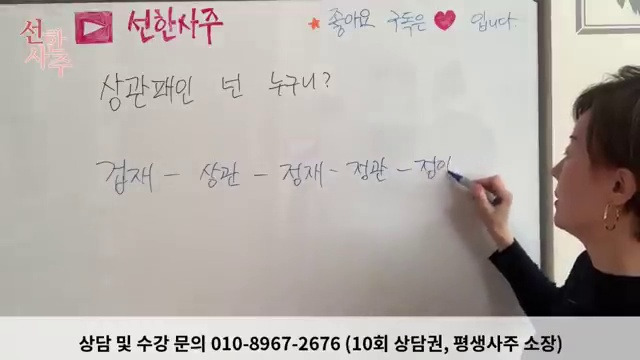 선한사주
선한사주
★ 좋아요 구독은 ♥ 입니다.
상관패인 넌 누구니?
겁재 - 상관 - 정재 - 정관 - 정인
상담 및 수강 문의 010-8967-2676 (10회 상담권, 평생사주 소장)